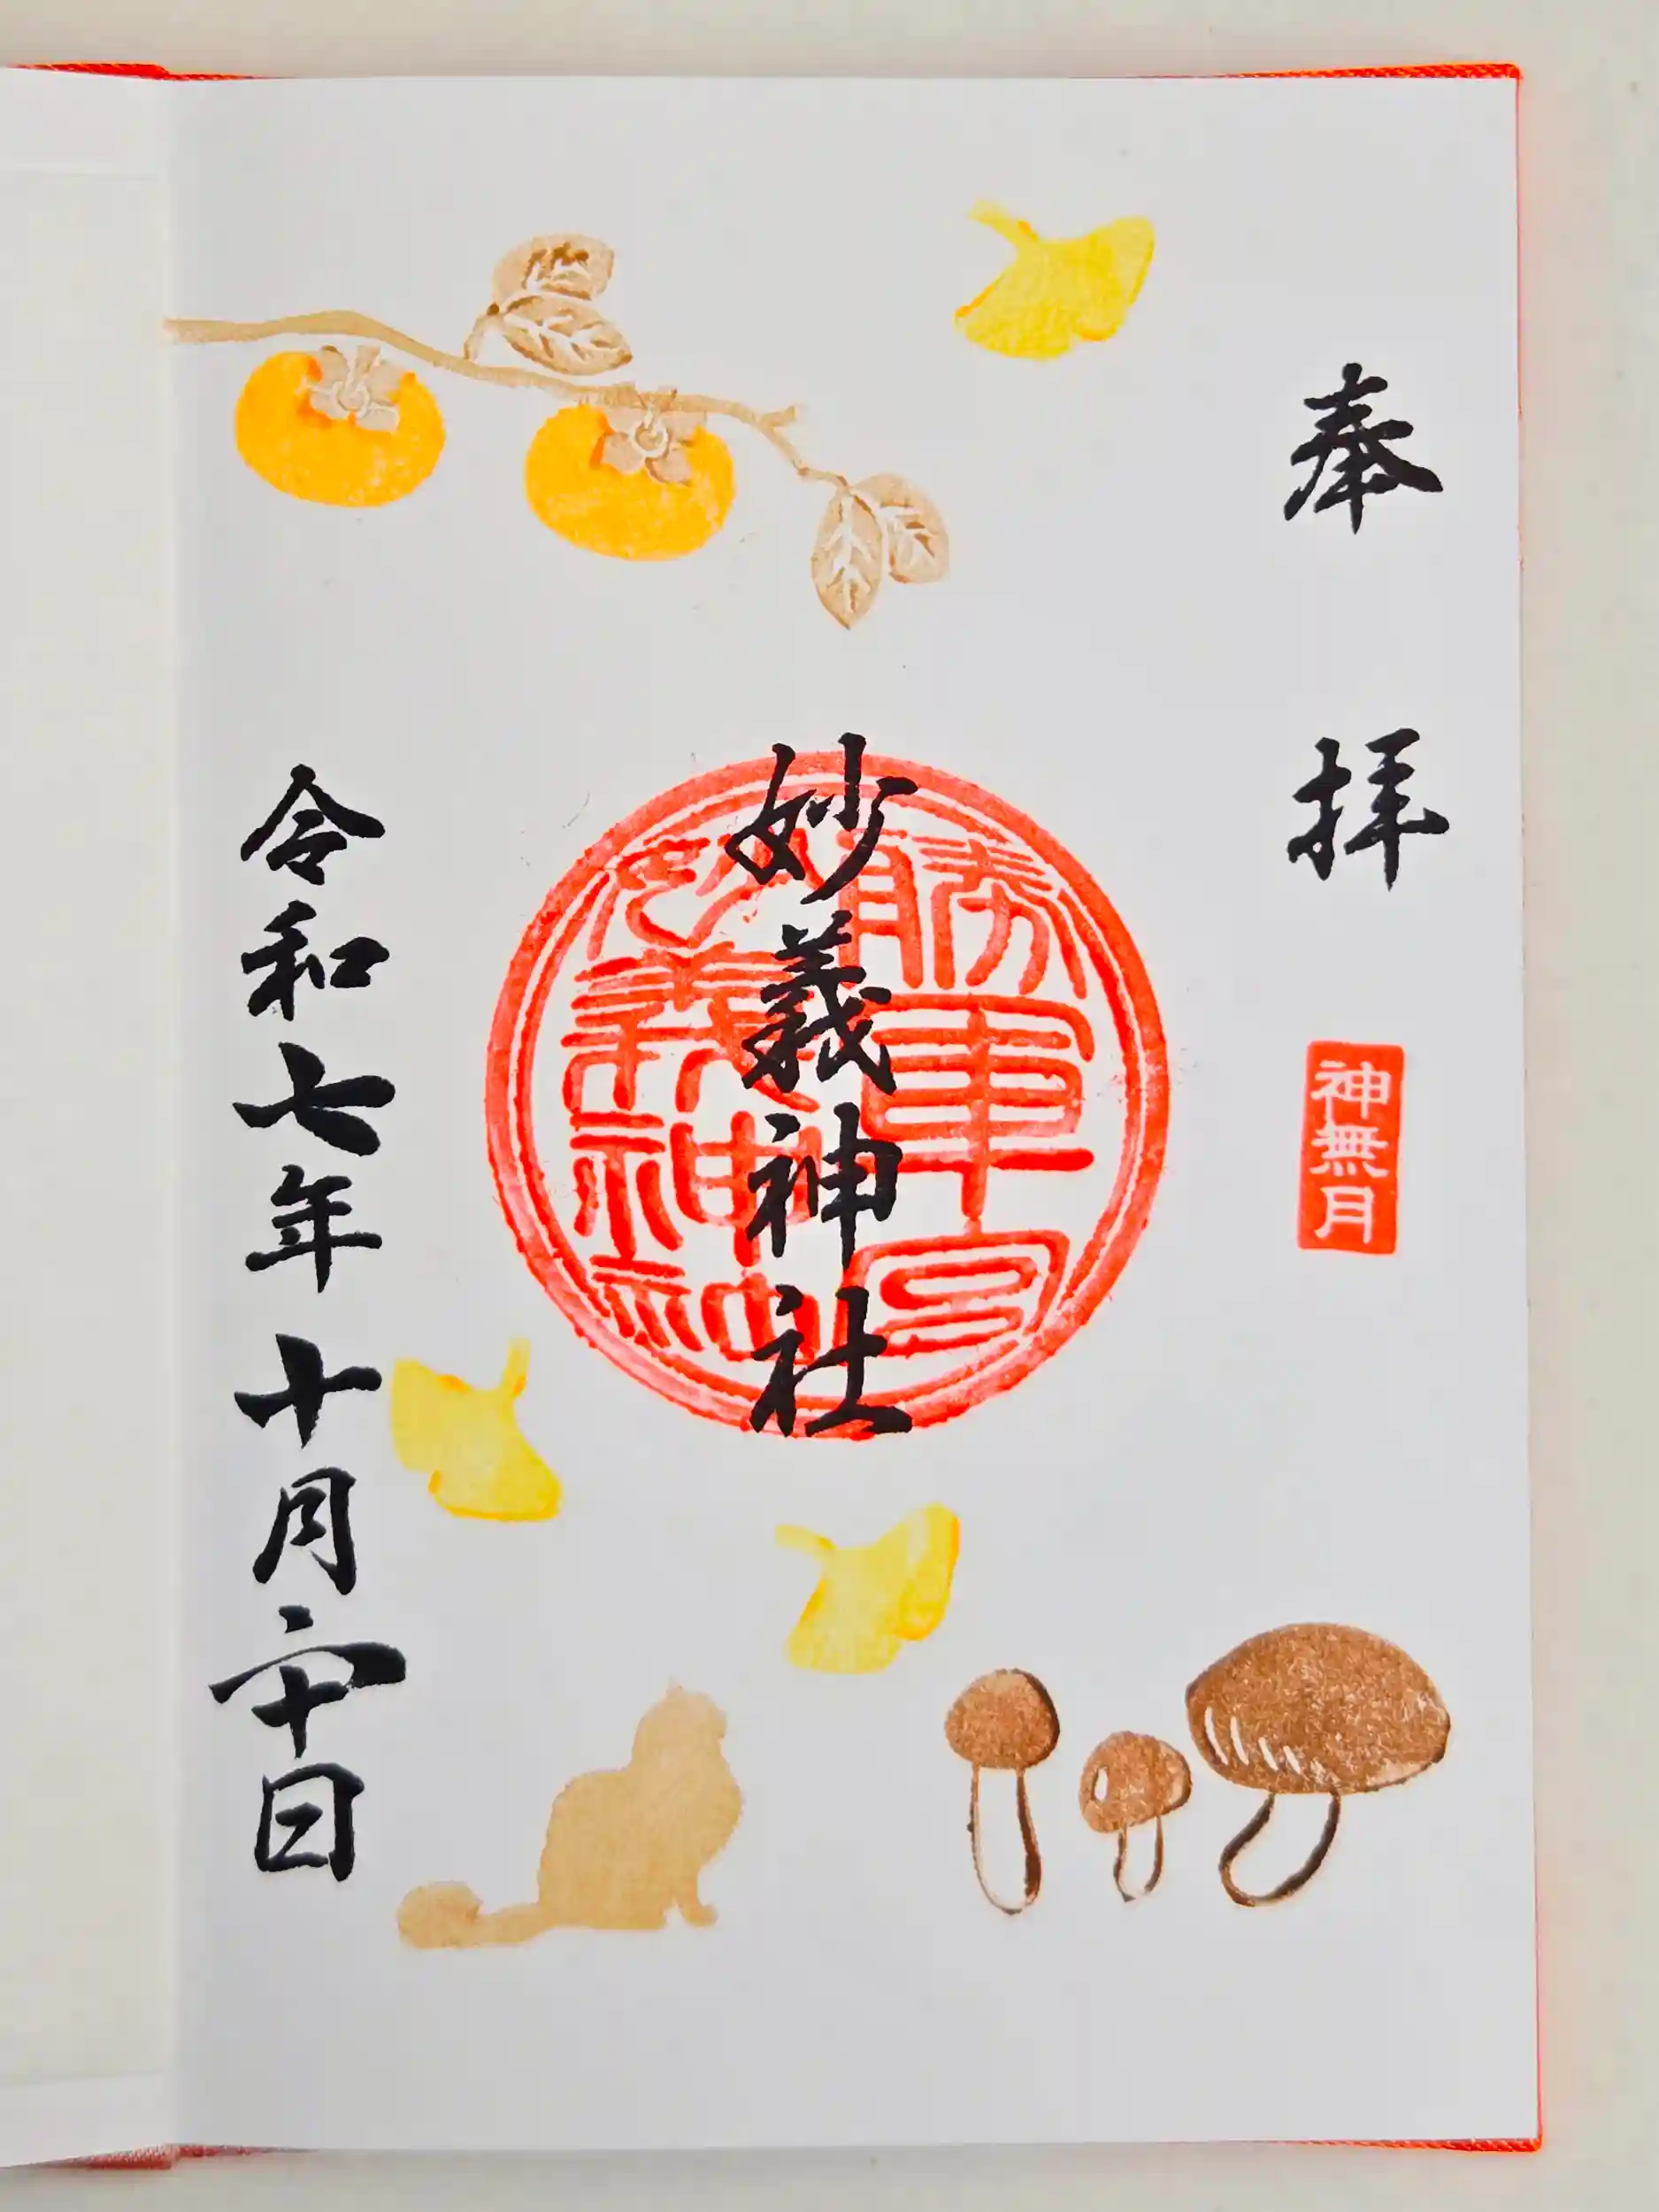 奉拝
神無月
妙義神社
勝軍宮
令和七年十月二十日